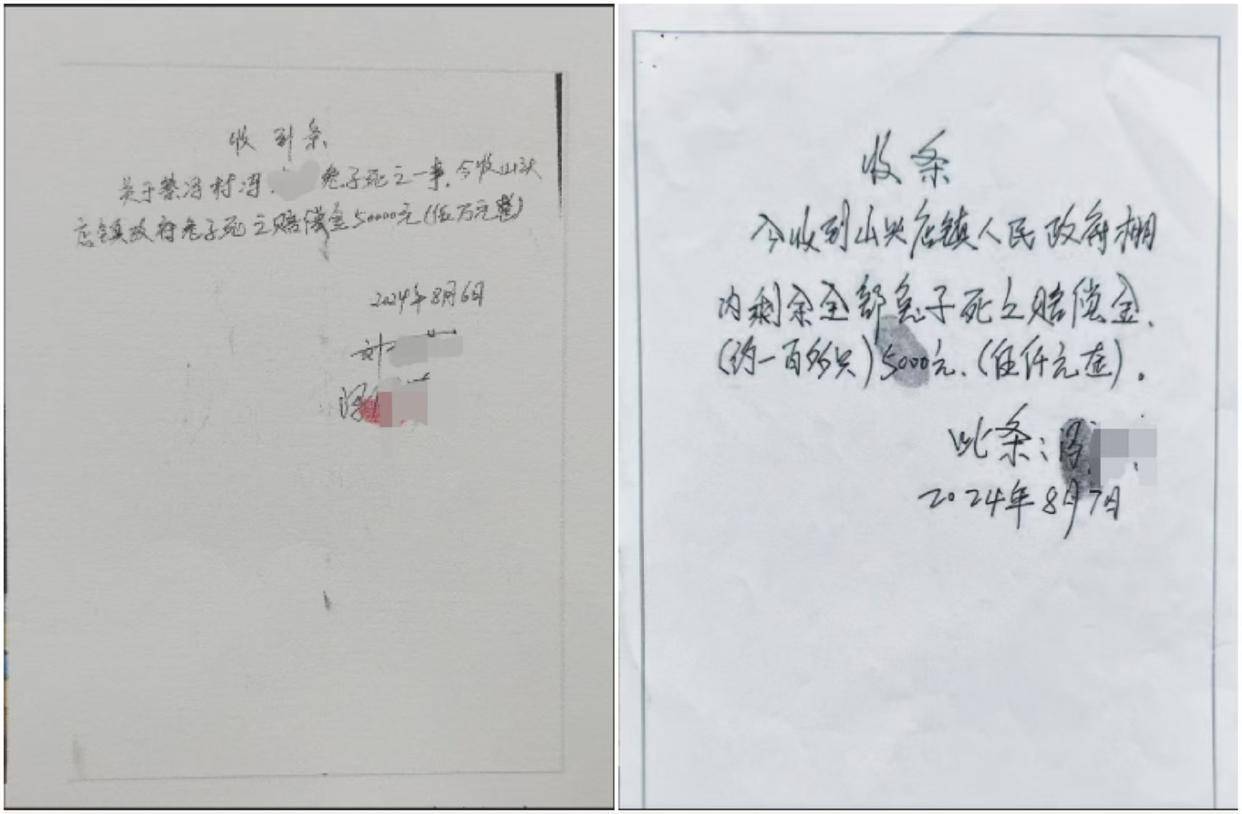 收到条
关于蔡冯村冯 兔子死之一事.今收山头
店镇政府兔子死之赔偿金50000元(伍万元整)
2024年8月6日
刘
冯
收条
今收到山头店镇人民政府棚
内剩余全部兔子死之赔偿金.
(约一百多只)5000元.(伍仟元整).
收条:冯
2024年8月7日